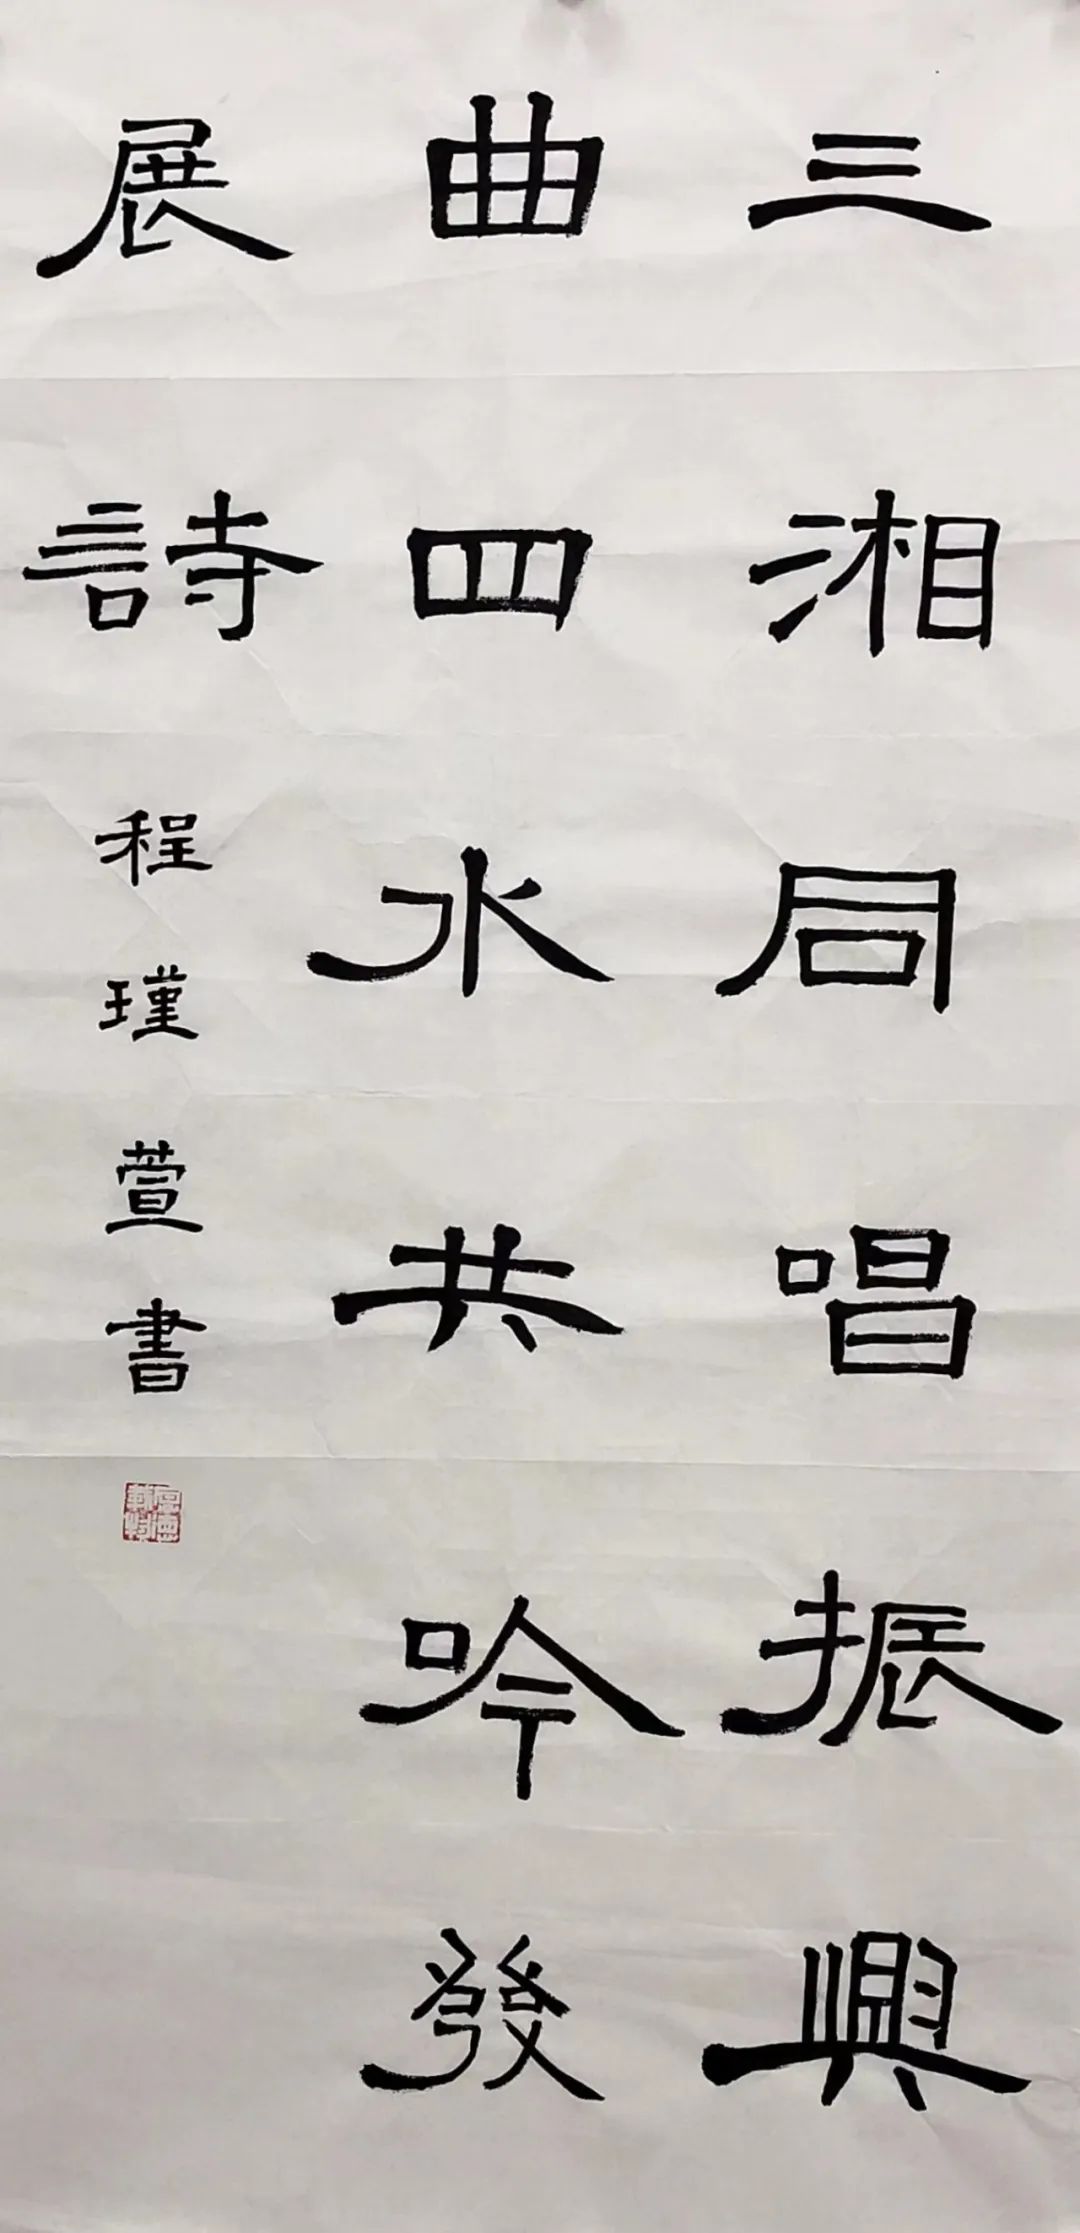 三湘同唱振興
曲四水共吟發
展詩
程瑾萱書
厚德載物